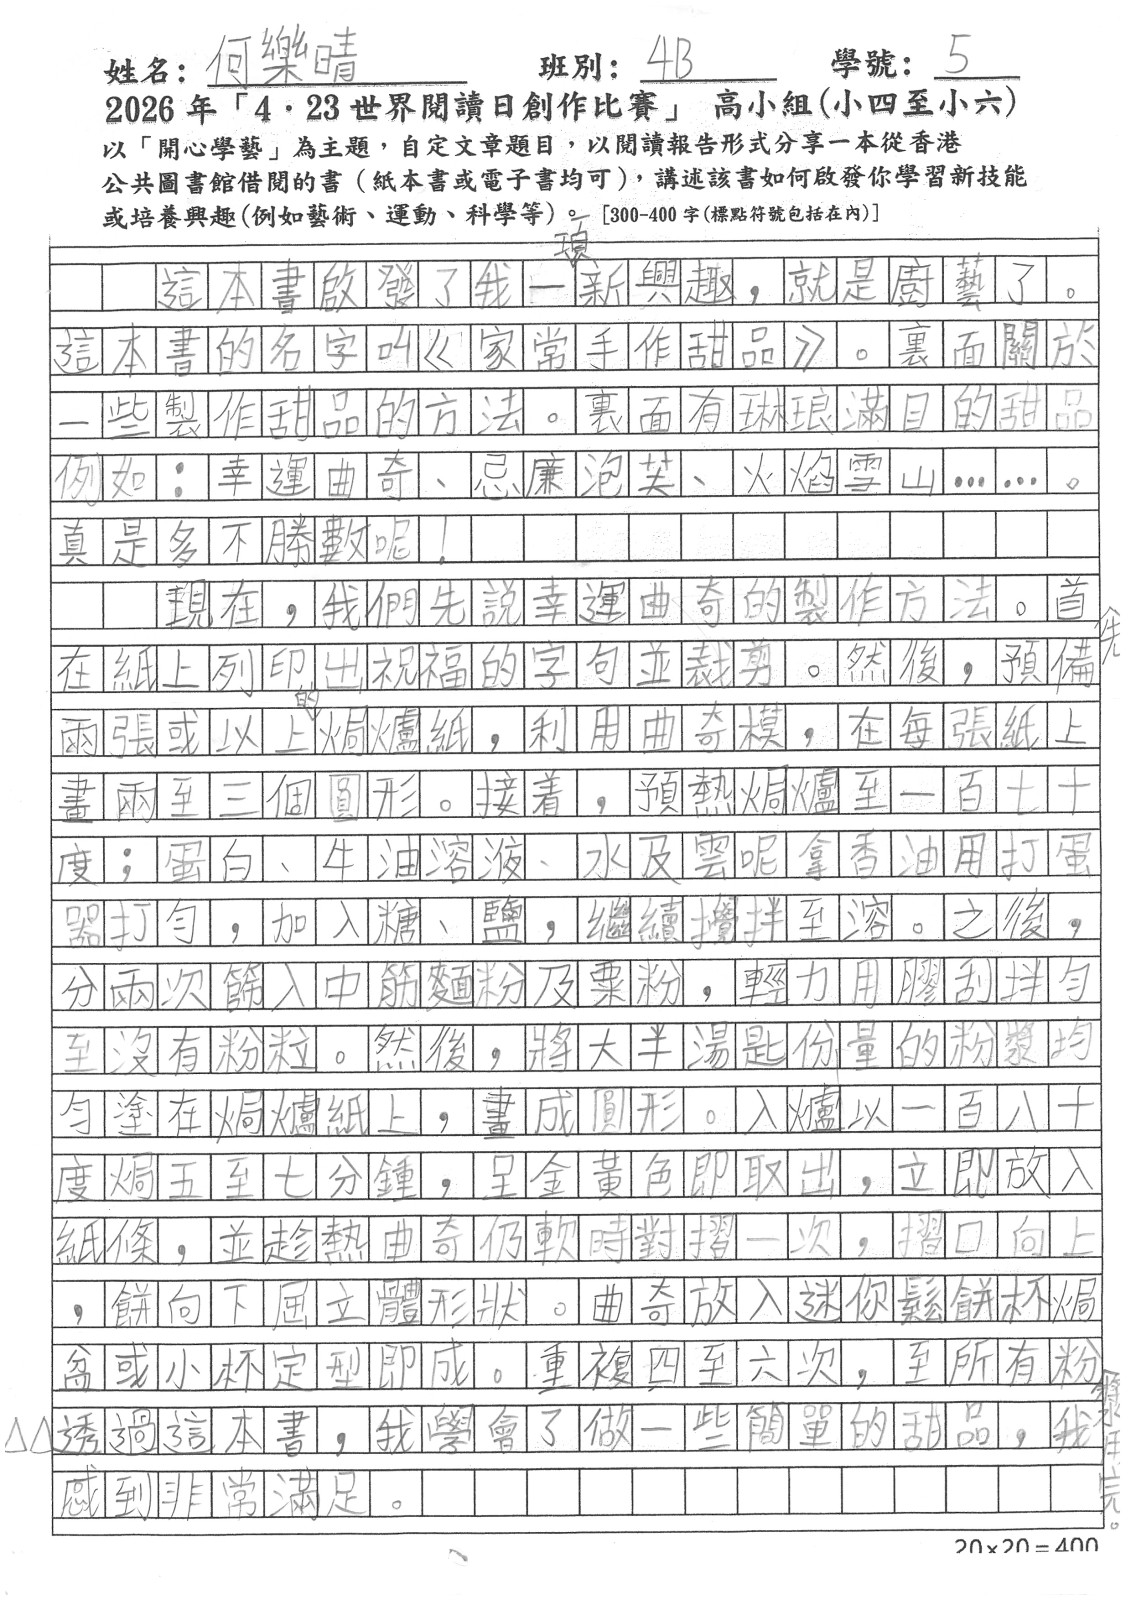 姓名：何樂晴 班別：4B 學號：5
2026 年「4．23 世界閱讀日創作比賽」 高小組(小四至小六)
以「開心學藝」為主題，自定文章題目，以閱讀報告形式分享一本從香港
公共圖書館借閱的書（紙本書或電子書均可），講述該書如何啟發你學習新技能
或培養興趣(例如藝術、運動、科學等)。[300-400 字(標點符號包括在內)]
這本書啟發了我一項新興趣，就是廚藝了。
這本書的名字叫《家常手作甜品》。裏面關於
一些製作甜品的方法。裏面有琳琅滿目的甜品
例如：幸運曲奇、忌廉泡芙、火焰雪山……。
真是多不勝數呢！
現在，我們先說幸運曲奇的製作方法。首先
在紙上列印出祝福的字句並裁剪。然後，預備
兩張或以上的焗爐紙，利用曲奇模，在每張紙上
畫兩至三個圓形。接着，預熱焗爐至一百七十
度；蛋白、牛油溶液、水及雲呢拿香油用打蛋
器打勻，加入糖、鹽，繼續攪拌至溶。之後，
分兩次篩入中筋麵粉及粟粉，輕力用膠刮拌勻
至沒有粉粒。然後，將大半湯匙份量的粉漿均
勻塗在焗爐紙上，畫成圓形。入爐以一百八十
度焗五至七分鍾，呈金黃色即取出，立即放入
紙條，並趁熱曲奇仍軟時對摺一次，摺口向上
，餅向下屈立體形狀。曲奇放入迷你鬆餅杯焗
盆或小杯定型即成。重複四至六次，至所有粉漿用完。
△△透過這本書，我學會了做一些簡單的甜品，我
感到非常滿足。
20×20＝400